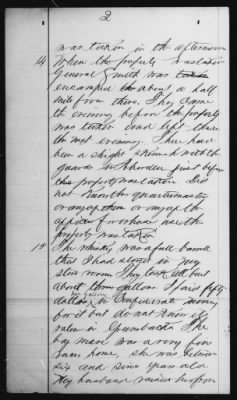 2
was taken in the afternoon
14 When the property was taken
General Smith was
encamped about a half
mile from there. They came
the evening before the property
was taken and left there
the next evening. There have
been a slight skirmish with
guards just before
the property was taken did
not know the quartermaster
or any other or any of the
officers
property was taken
15 The whiskey was a full barrel
that I had stored in my
store room They took all but
about three gallons I paid fifty
dollars per gallon in Confederate money
for it but do not know its
value in Greenbacks The
bay mare was a very fine
mare, she was between
six and nine years old
My husband raised her from